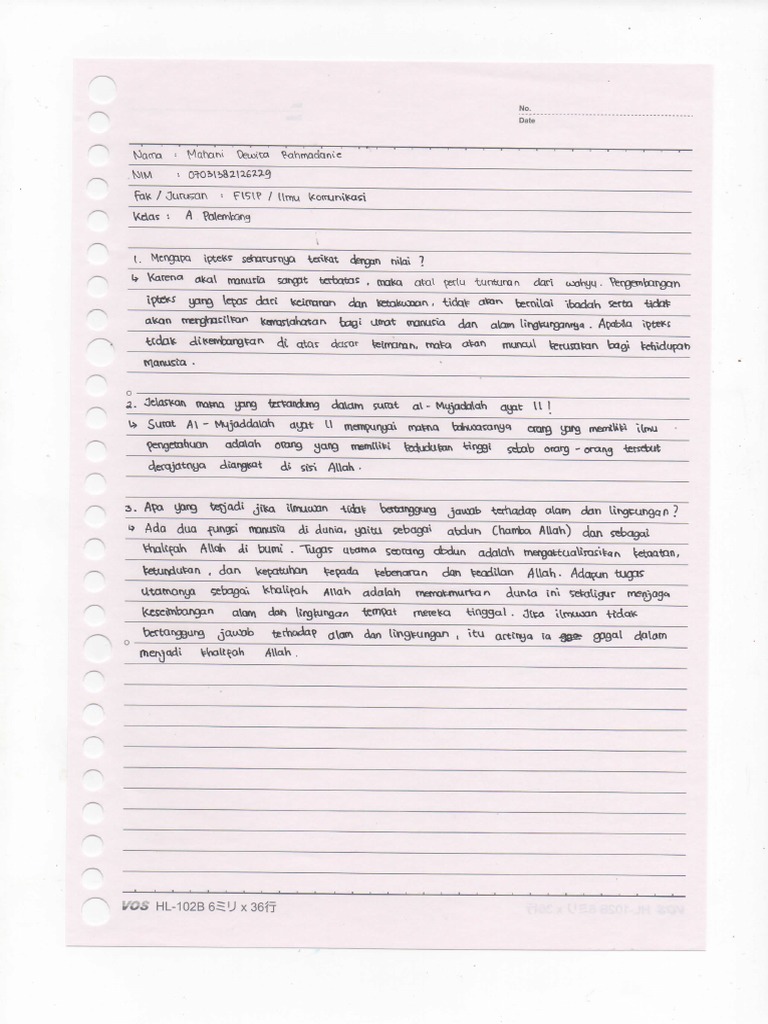 No.
Date
Nama : Mahani Dewita Rahmadanie
NIM : 07031382126229
Fak / Jurusan : FISIP / Ilmu Komunikasi
Kelas : A Palembang
1. Mengapa ipteks seharusnya terikat dengan nilai ?
↳ Karena akal manusia sangat terbatas, maka akal perlu tuntunan dari wahyu. Pengembangan
ipteks yang lepas dari keimanan dan ketakwaan, tidak akan bernilai ibadah serta tidak
akan menghasilkan kemaslahatan bagi umat manusia dan alam lingkungannya. Apabila ipteks
tidak dikembangkan di atas dasar keimanan, maka akan muncul kerusakan bagi kehidupan
manusia.
2. Jelaskan makna yang terkandung dalam surat al-Mujadalah ayat 11!
↳ Surat Al-Mujaddalah ayat 11 mempunyai makna bahwasanya orang yang memiliki ilmu
pengetahuan adalah orang yang memiliki kedudukan tinggi sebab orang-orang tersebut
derajatnya diangkat di sisi Allah.
3. Apa yang terjadi jika ilmuwan tidak bertanggung jawab terhadap alam dan lingkungan?
↳ Ada dua fungsi manusia di dunia, yaitu sebagai abdun (hamba Allah) dan sebagai
khalifah Allah di bumi. Tugas utama seorang abdun adalah mengaktualisasikan ketaatan,
ketundukan, dan kepatuhan kepada kebenaran dan keadilan Allah. Adapun tugas
utamanya sebagai khalifah Allah adalah memakmurkan dunia ini sekaligus menjaga
keseimbangan alam dan lingkungan tempat mereka tinggal. Jika ilmuwan tidak
bertanggung jawab terhadap alam dan lingkungan, itu artinya ia gagal dalam
menjadi khalifah Allah.
VOS HL-102B 6ミリ x 36行